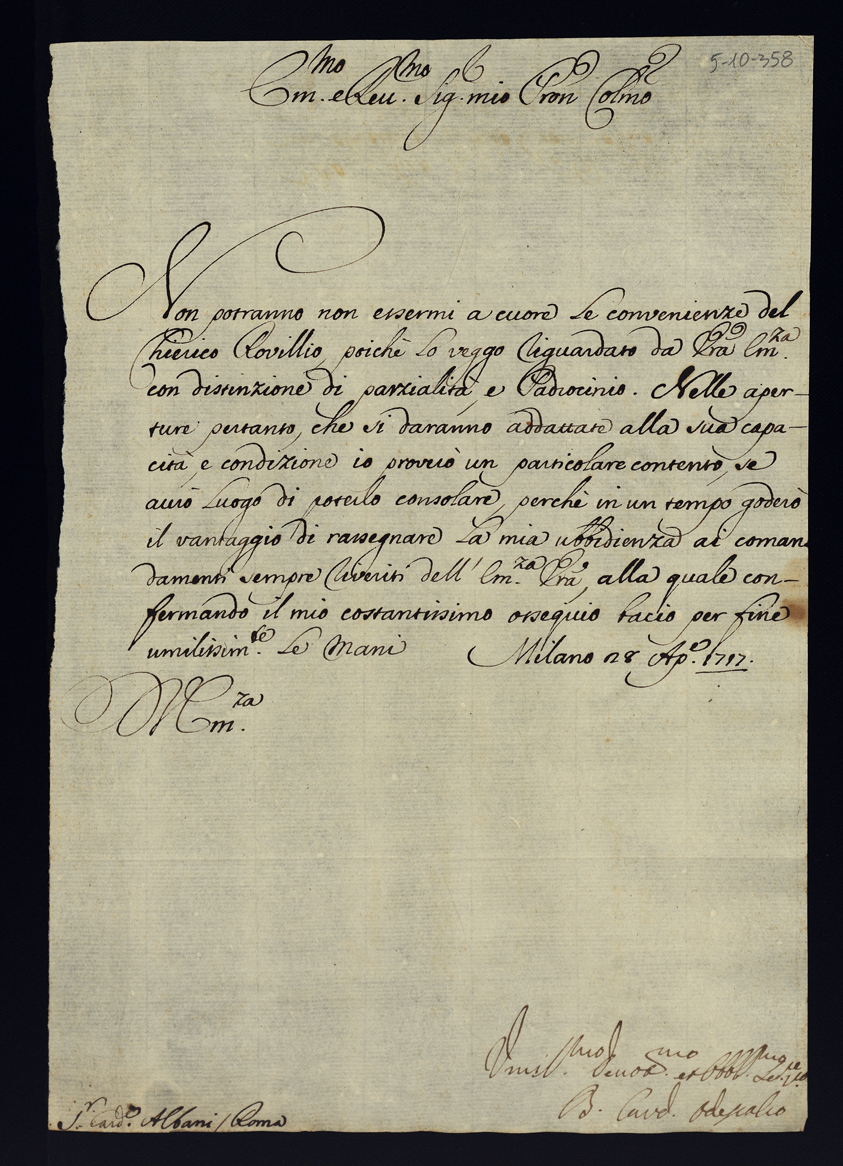 5-10-358
Em.mo e Reu.mo Sig.r mio Pron Colmo
Non potranno non essermi a cuore le convenienze del
Chierico Rovillio, poichè lo veggo riguardato da Vra Em.za
con distinzione di parzialità, e Padrocinio. Nelle aper-
ture pertanto, che si daranno addattate alla sua capa-
cità, e condizione io proverò un particolare contento, se
aurò luogo di poterlo consolare, perchè in un tempo goderò
il vantaggio di rassegnare la mia ubbidienza ai coman
damenti sempre riveriti dell' Em.za Vra, alla quale con-
fermando il mio costantissimo ossequio bacio per fine
umilissim.te le Mani Milano 28 Ap.e 1717.
Em.za
Umil.mo Deuot.mo et Obbl.mo Ser.re
B. Card. Odescalco
S.r Card.e Albani / Roma